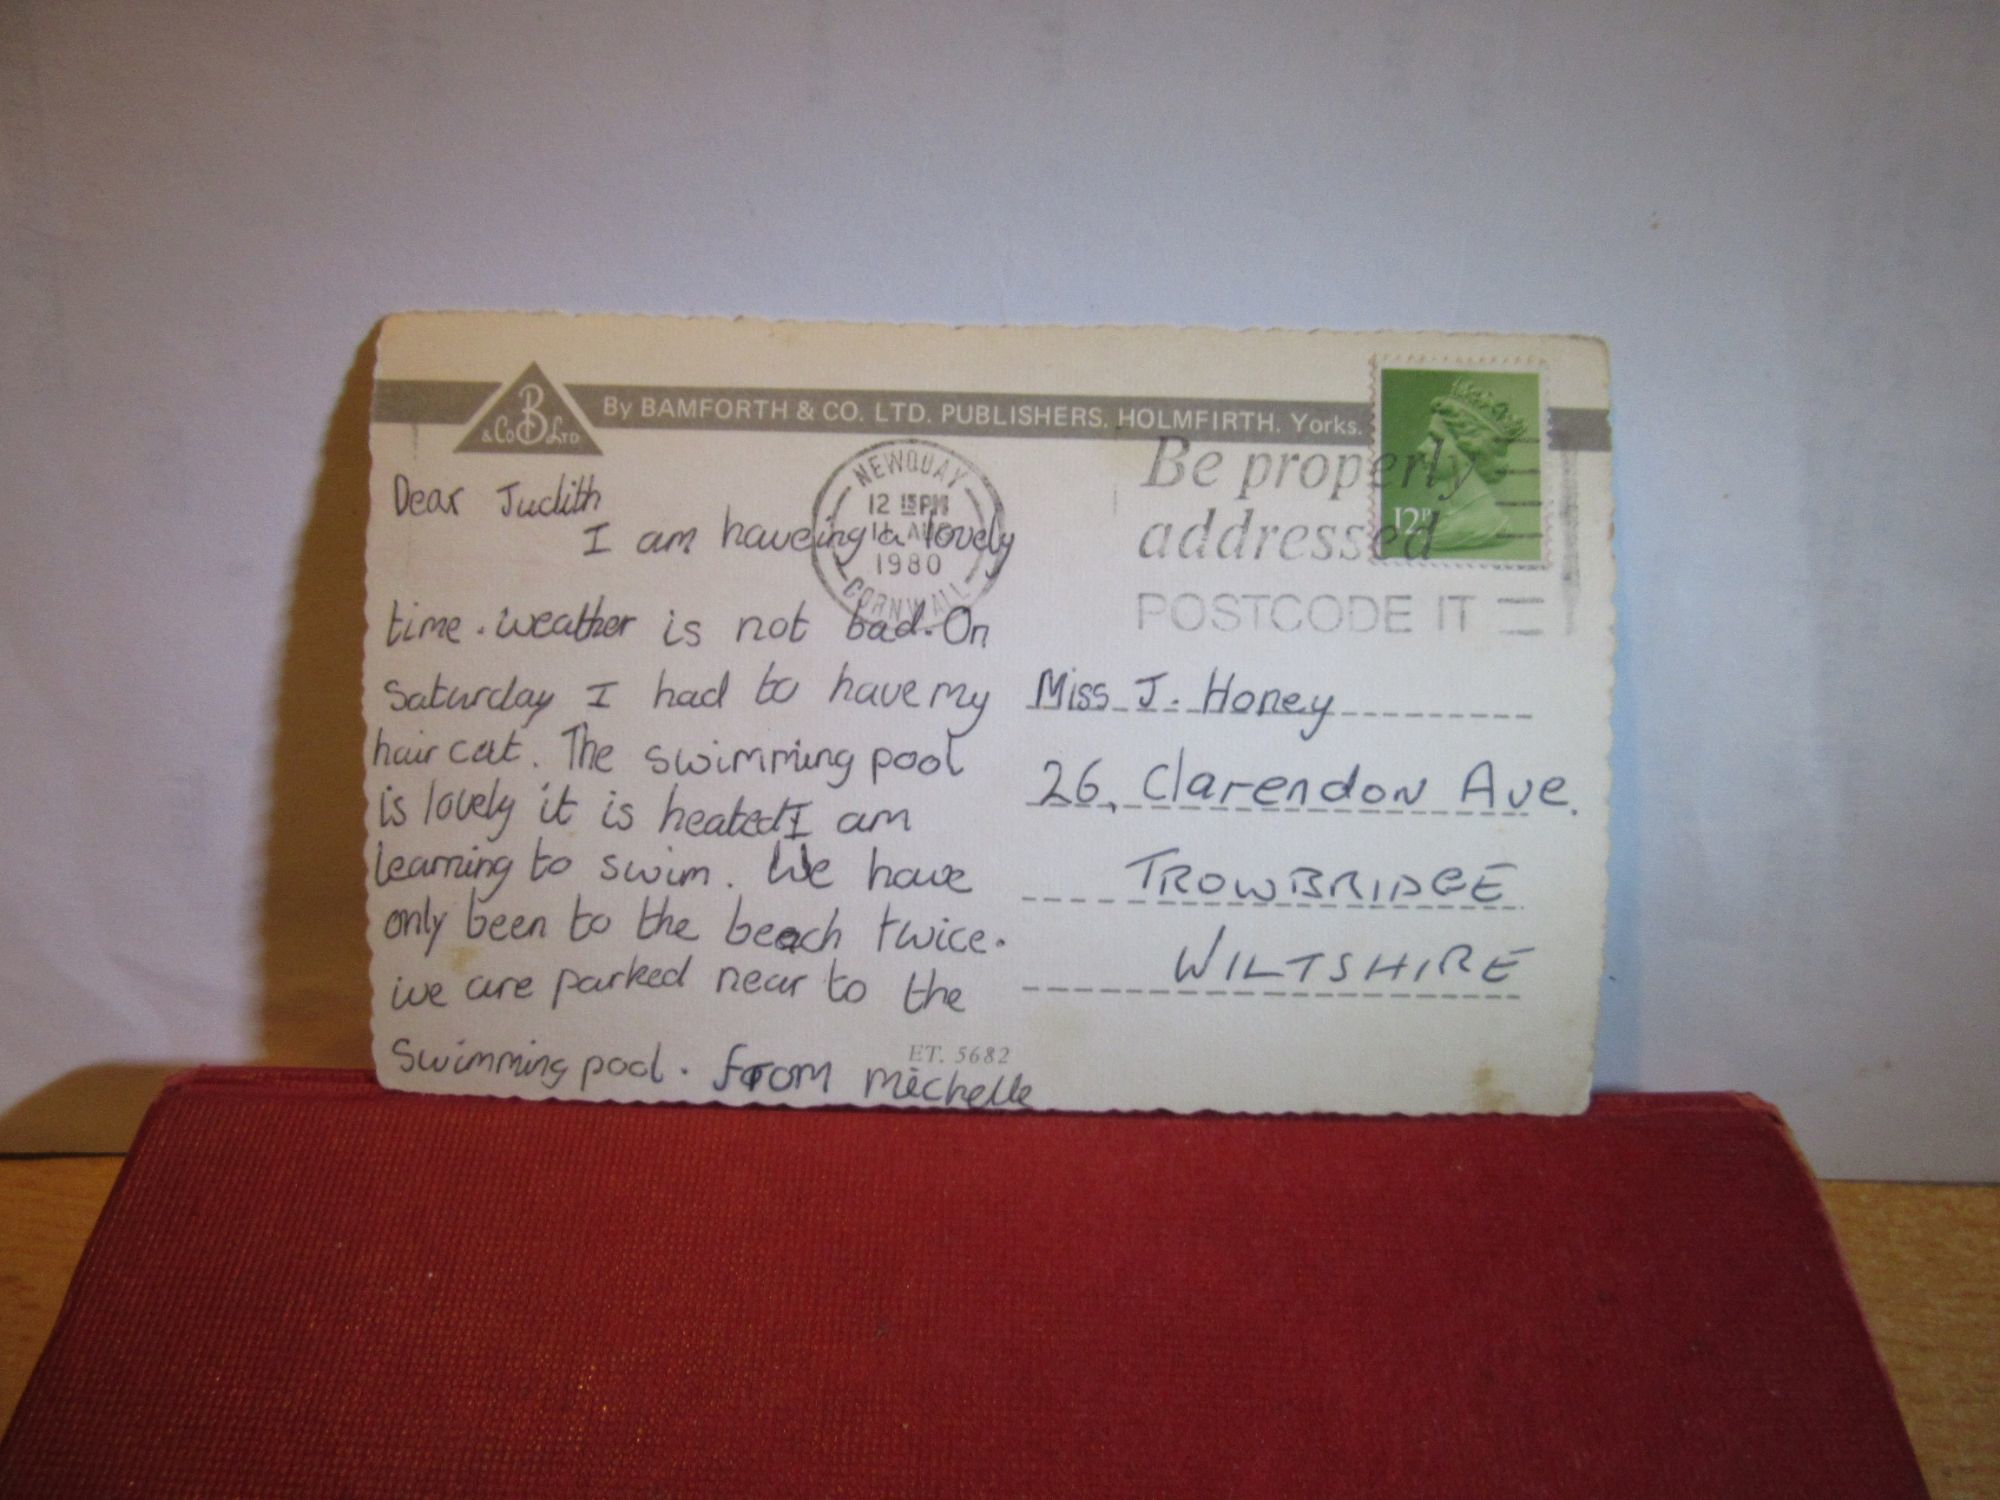 B
& Co LTD
By BAMFORTH & CO. LTD. PUBLISHERS. HOLMFIRTH. Yorks.
NEWQUAY
12 15PM
11 AUG
1980
CORNWALL
Be properly
addressed
POSTCODE IT
12P
Dear Judith
I am haveing a lovely
time. weather is not bad. On
Saturday I had to have my
hair cut. The swimming pool
is lovely it is heated I am
learning to swim. We have
only been to the beach twice.
we are parked near to the
Swimming pool. from michelle
Miss J. Honey
26, Clarendon Ave.
TROWBRIDGE
WILTSHIRE
ET. 5682